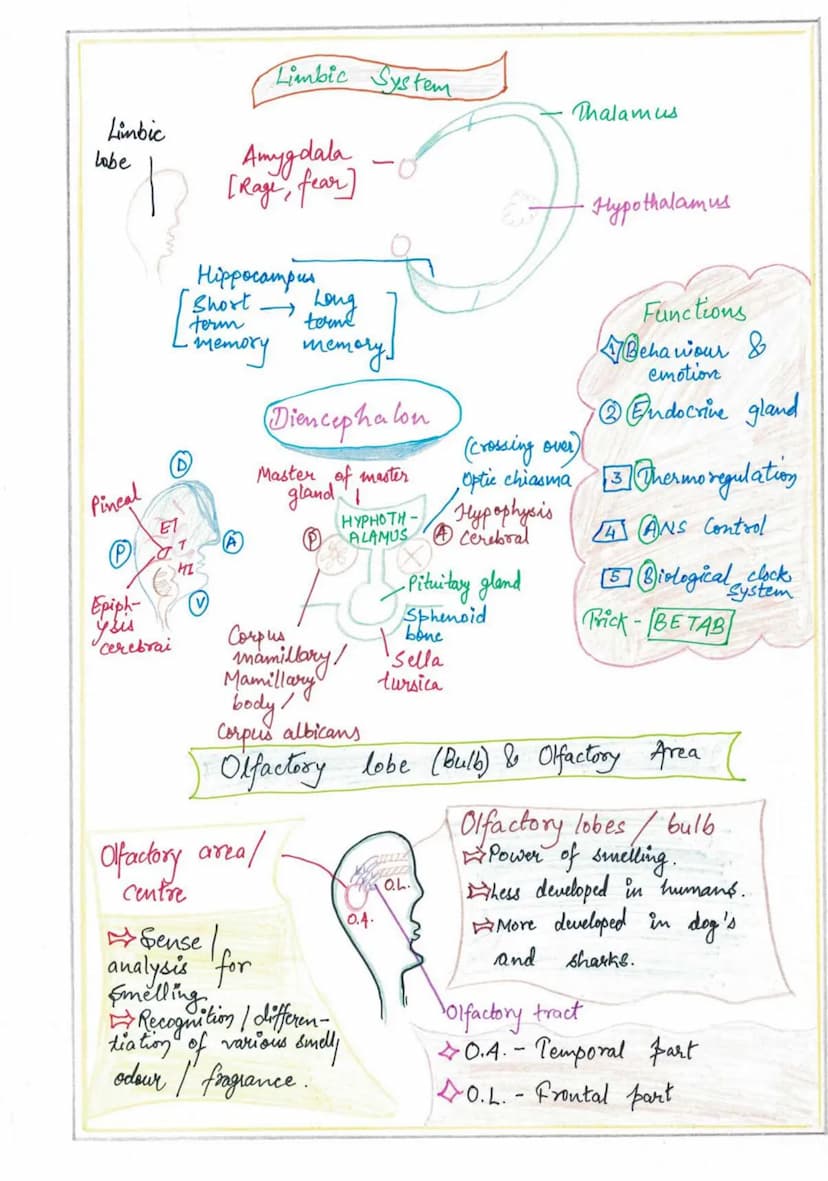 Limbic System
Limbic
lobe
Amygdala
[Rage, fear]
Thalamus
Hypothalamus
Hippocampus
[Short → Long
term terme
memory memory]
Functions
1 Behaviour &
emotion
2 Endocrine gland
3 Thermoregulation
4 ANS Control
5 Biological clock
system
Trick - BETAB
Diencephalon
Master of master
gland
(Crossing over)
Optic chiasma
HYPHOTH-
ALAMUS
P
A
Hypophysis
cerebral
Pituitary gland
Sphenoid
bone
Sella
tursica
Corpus
mamillary /
Mamillary
body /
Corpus albicans
D
Pineal
P
A
V
ET
T
HT
Epiph-
ysis
cerebrai
Olfactory lobe (Bulb) & Olfactory Area
Olfactory area /
centre
⇨ Sense /
analysis for
smelling
⇨ Recognition / differen-
tiation of various smell,
odour / fragrance.
O.L.
O.A.
Olfactory lobes / bulb
⇨ Power of smelling.
⇨ Less developed in humans.
⇨ More developed in dog's
and sharks.
Olfactory tract
✧ O.A. - Temporal part
✧ O.L. - Frontal part